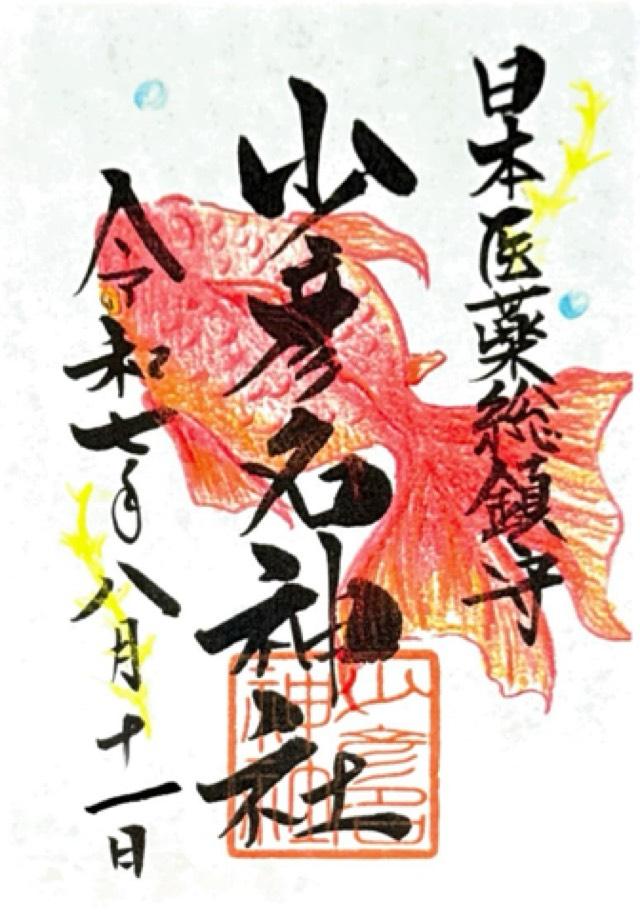 日本医薬総鎮守
少彦名神社
令和七年八月十一日
少彦名
神社